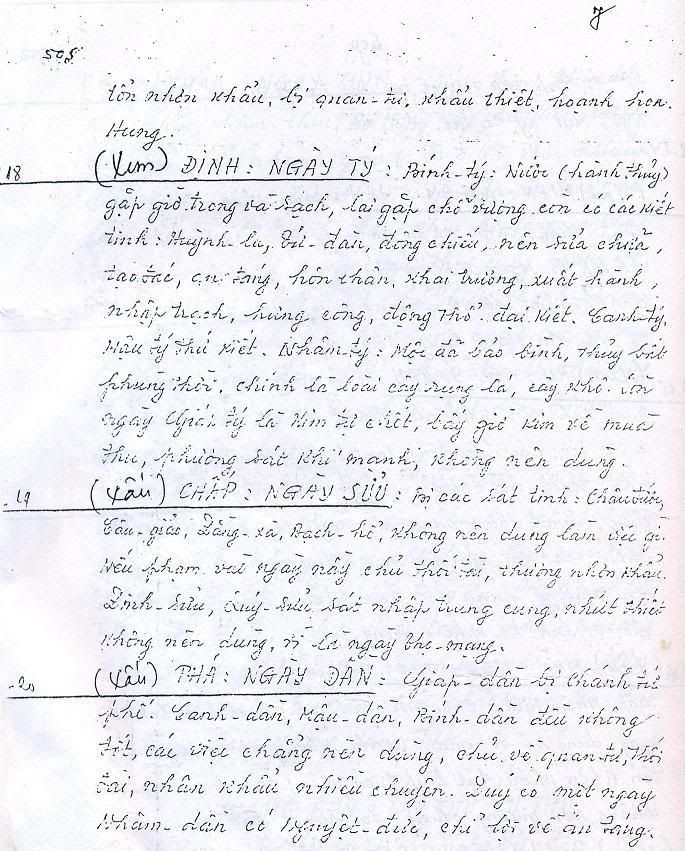 7
505
tổn nhơn khẩu, bị quan-tư, khẩu thiệt, hoạnh họa.
Hung.
18 (Xem) ĐÌNH: NGÀY TÝ: Bính-tý: Nước (hành thủy)
gặp giờ trong và sạch, lại gặp chỗ vượng con có các kiết
tinh: Huỳnh-la, Tử-đàn, đồng chiếu, nên sửa chữa,
tạo tác, an táng, hôn nhân, khai trương, xuất hành,
nhập trạch, hưng công, động thổ đại kiết. Canh-tý,
Mậu tý thứ kiết. Nhâm-tý: Mộc đã bảo bình, thủy bất
phùng thời, chính là loài cây rụng lá, cây khô. Còn
ngày Giáp tý là Kim tự chết, bấy giờ Kim về mùa
thu, phương sát khí mạnh, không nên dùng.
-19 (Xấu) CHẤP: NGÀY SỬU: Bị các sát tinh: Châu tước,
Câu-giảo, Đằng-xà, Bạch-hổ, không nên dùng làm việc gì.
Nếu phạm vào ngày nầy chủ thối tài, thương nhơn khẩu.
Đinh-sửu, Quý-sửu sát nhập trung cung, nhứt thiết
không nên dùng, vì là ngày thọ-mạng.
-20 (Xấu) PHÁ: NGÀY DẦN: Giáp-dần bị Chánh tứ
phế. Canh-dần, Mậu-dần, Bính-dần đều không
tốt, các việc chẳng nên dùng, chủ về quan tư, thối
tài, nhân khẩu nhiều chuyện. Duy có một ngày
Nhâm-dần có Nguyệt-đức, chỉ lợi về an táng.